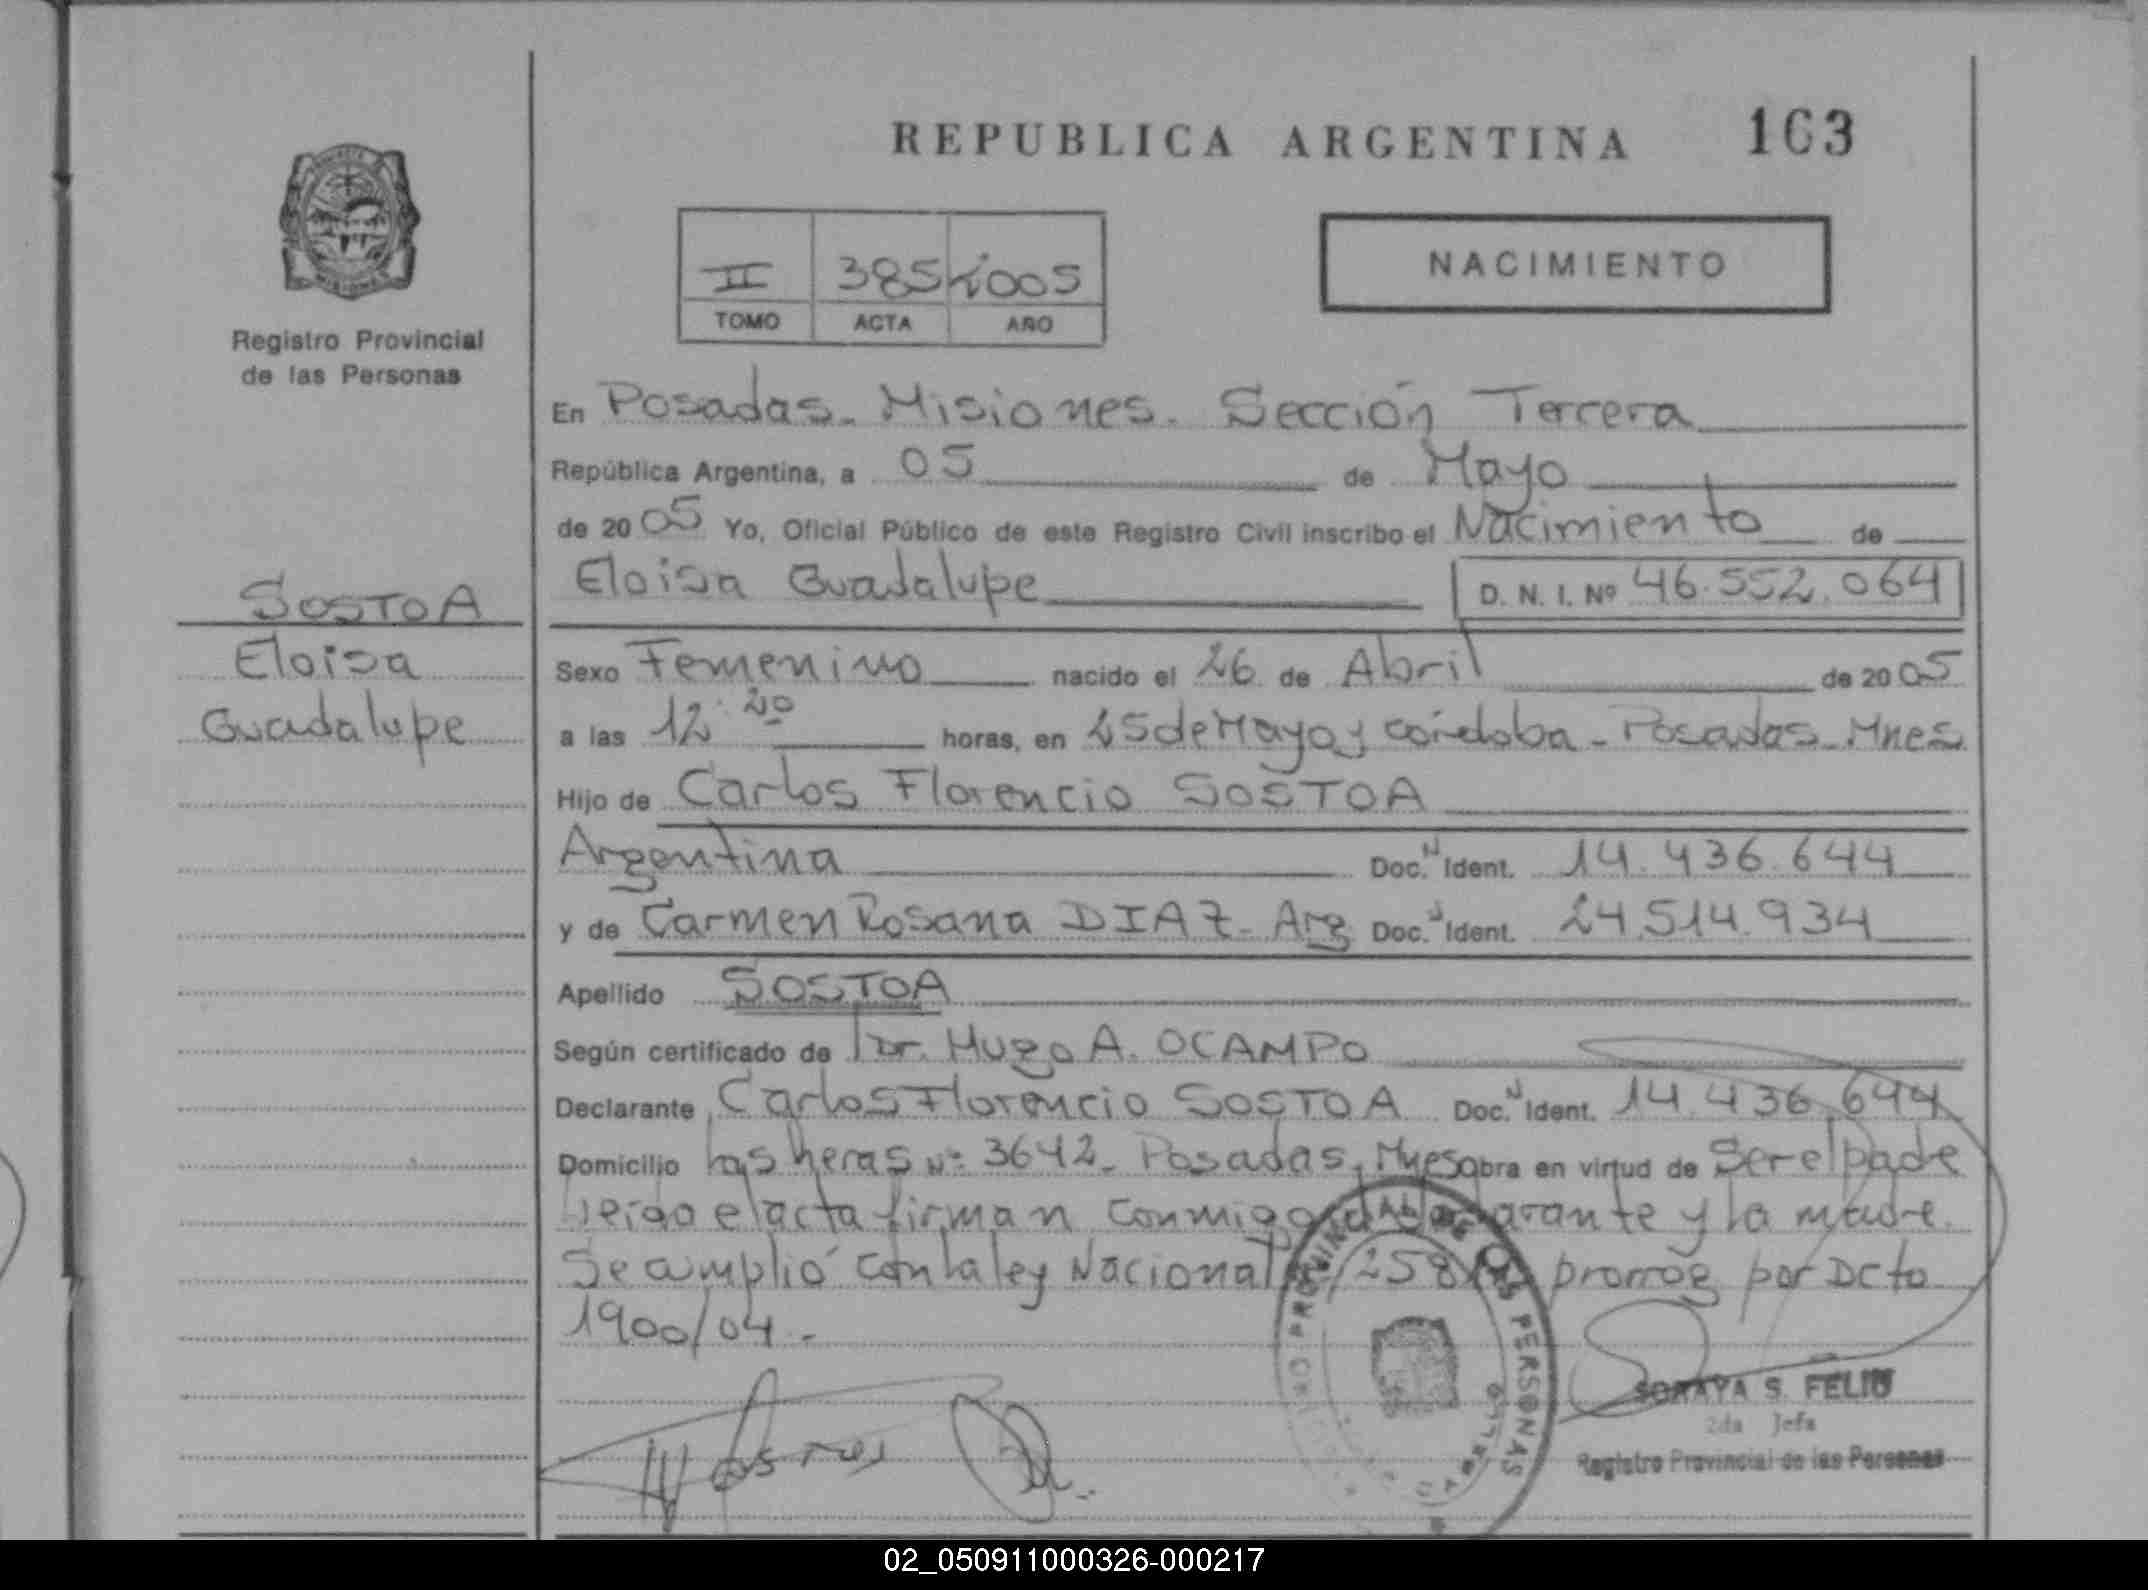 REPUBLICA ARGENTINA 163
II 385 2005
TOMO ACTA AÑO
NACIMIENTO
Registro Provincial
de las Personas
SOSTOA
Eloisa
Guadalupe
En Posadas - Misiones - Sección Tercera
República Argentina, a 05 de Mayo
de 20 05 Yo, Oficial Público de este Registro Civil inscribo el Nacimiento de
Eloisa Guadalupe D. N. I. Nº 46.552.064
Sexo Femenino nacido el 26 de Abril de 20 05
a las 12 20 horas, en 25 de Mayo y córdoba - Posadas - Mnes
Hijo de Carlos Florencio SOSTOA
Argentina Doc. N Ident. 14.436.644
y de Carmen Rosana DIAZ - Arg Doc. N Ident. 24.514.934
Apellido SOSTOA
Según certificado de Dr. Hugo A. OCAMPO
Declarante Carlos Florencio SOSTOA Doc. N Ident. 14.436.644
Domicilio las heras Nº 3642 - Posadas, Mnes obra en virtud de Ser el padre
leida el acta firman conmigo y la madre
Se amplió con la ley Nacional prorrog por Dcto
1900/04 -
REGISTRO PROVINCIAL DE LAS PERSONAS
SORAYA S. FELIU
2da Jefa
Registro Provincial de las Personas
02_050911000326-000217